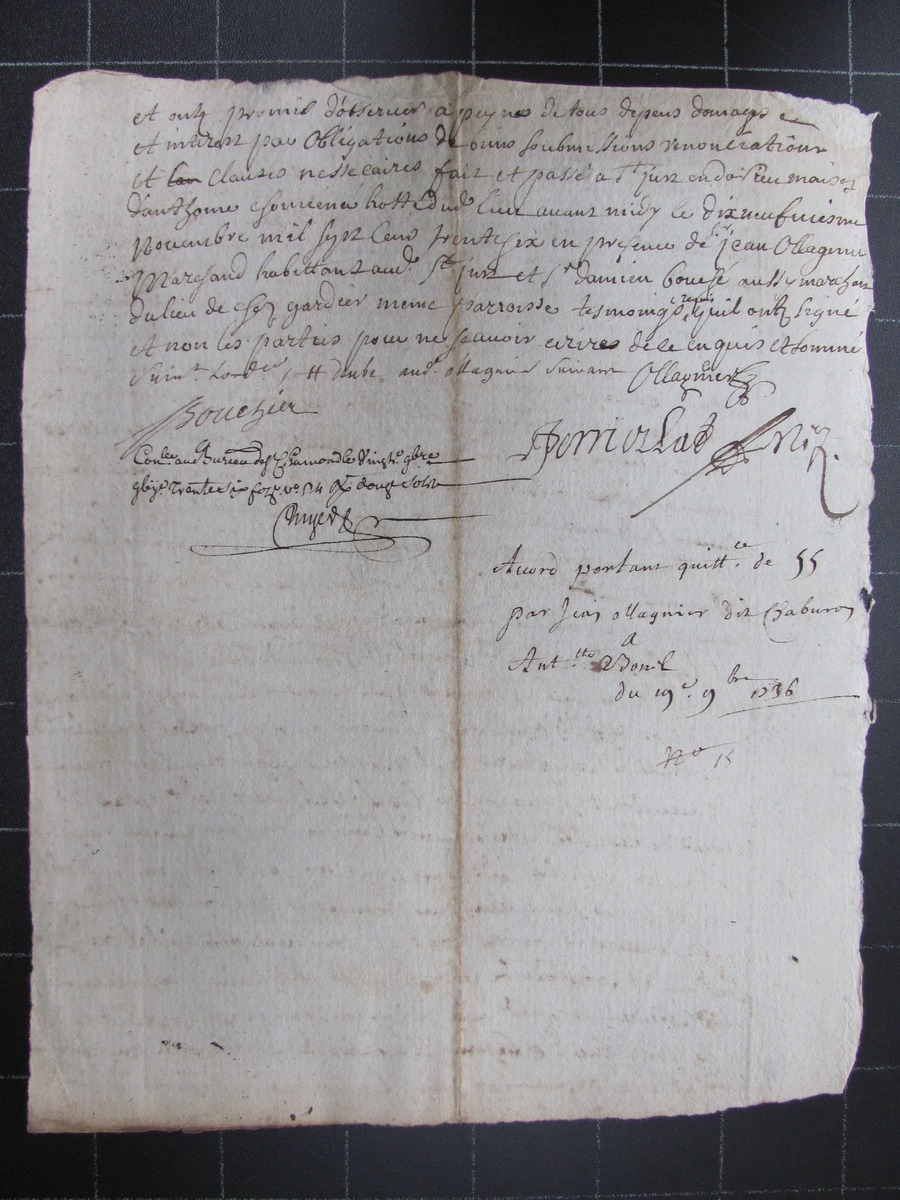 et ont promis d'observer a peynes de tous depens domages
et interest par obligations de biens soubmissions renontiations
et clauses nessecaires fait et passé a St jure en
d'anthome hotte dud. lieu avant midy le dixneufuiesme
Novembre mil sept cens trente six en presence de Sr jean Ollagnier
Marchand habittant aud. St jure et Sr damien aussy marchan
du lieu de chez gardier meme parroisse tesmoings quil ont signé
et non les parties pour ne scavoir écrires de ce enquis et sommé
suivt. aud. ollagnier suivant Ollagnier
Bouchier
au Bureau de St Chamond le vingt. 9bre
trente six fo. vo. 54 douze sols
Acord portant quittce. de 55
par Jean ollagnier dit Chaburon
a
Anttte.
du 19e. 9bre 1736
No 15